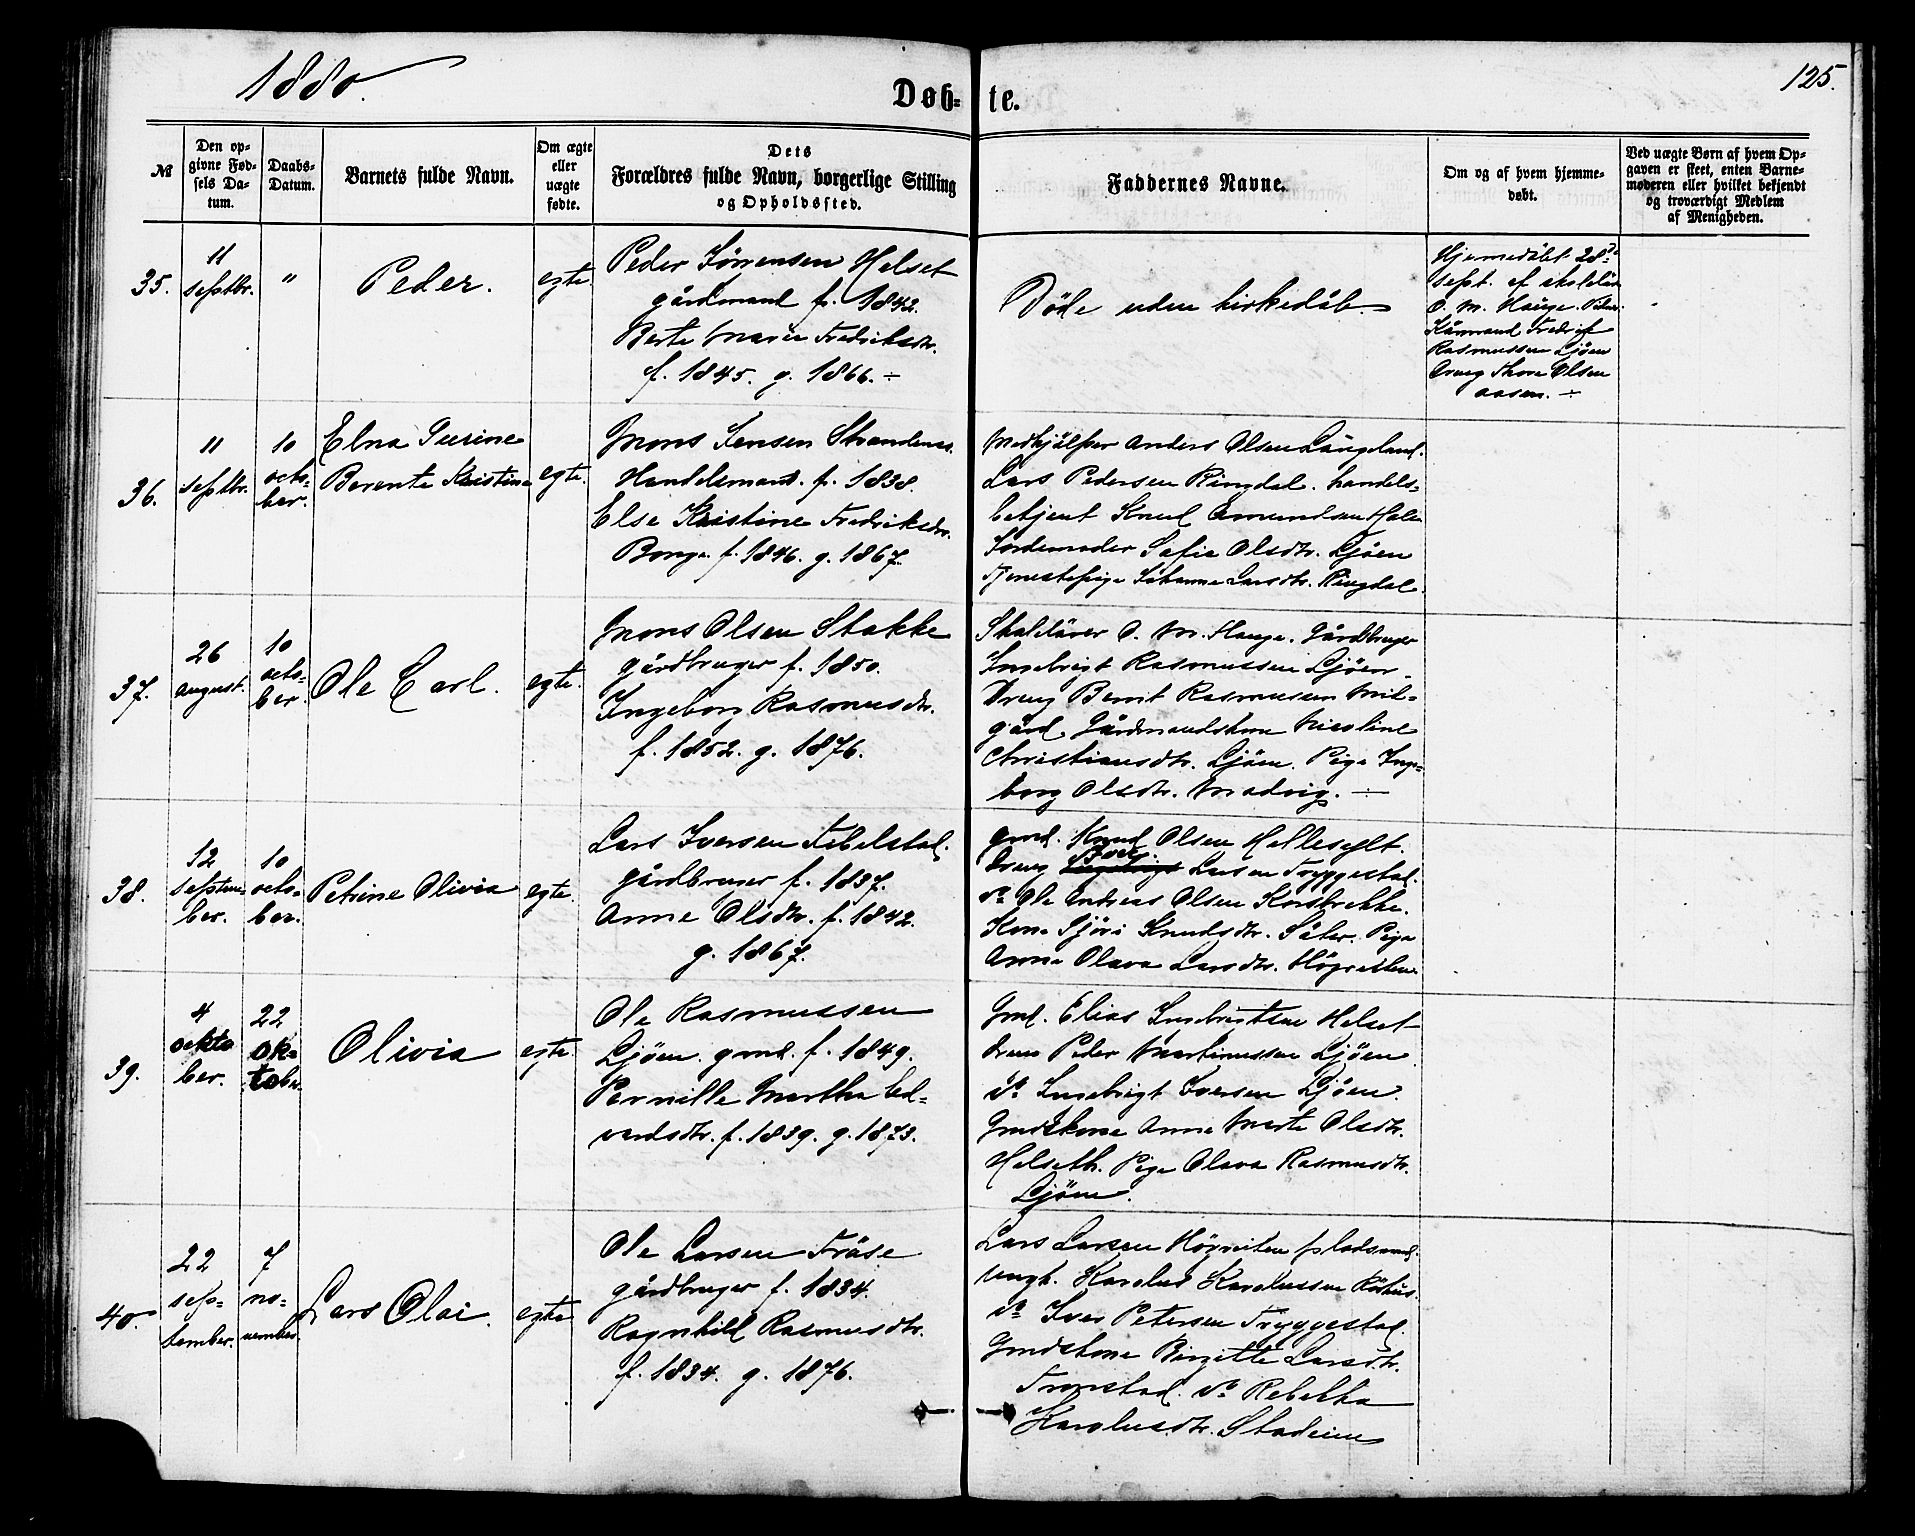 1880.
Døb-
te.
125.
№
Den op-
givne Fød-
sels Da-
tum.
Daabs-
Datum.
Barnets fulde Navn.
Om ægte
eller
uægte
fødte.
Dets
Forældres fulde Navn, borgerlige Stilling
og Opholdssted.
Faddernes Navne.
Om og af hvem hjemme-
døbt.
Ved uægte Børn af hvem Op-
gaven er skeet, enten Barne-
moderen eller hvilket bekjendt
og troværdigt Medlem
af Menigheden.
35.
11
septbr.
"
Peder.
egte.
Peder Sørrensen Helset
gårdmand f. 1842.
Berte Marie Fredriksdtr.
f. 1845. g. 1866. ÷
Döde uden kirkedåb.
Hjemedöbt 28de
sept. af skolelär.
O. M. Hauge.
Kårmand Fredrik
Rasmussen Ljöen
Dreng Thore Olsen
aasen. ÷
36.
11
septbr.
10
octo-
ber.
Elna Surine
Berente Kristine
egte.
Mons Jensen Strandenes.
Handelsmand. f. 1838.
Else Kristine Fredriksdtr.
Bonge. f. 1846. g. 1867.
Medhjälper Anders Olsen Langeland.
Lars Pedersen Ringdal. handels-
betjent Knud Amundsen Hole
Jordemoder Sofie Olsdtr. Ljöen
Tjenestepige Johanne Larsdtr. Ringdal.
37.
26
august.
10
octo-
ber.
Ole Carl.
egte.
Mons Olsen Stakke
gårdbruger f. 1850.
Ingeborg Rasmusdtr.
f. 1852. g. 1876.
Skolelärer O. M. Hauge. Gårdbruger
Ingebrigt Rasmussen Ljöen.
Dreng Bernt Rasmussen Mel-
gård. Gårdmandskone Nicoline
Christiansdtr. Ljöen. Pige Inge-
borg Olsdtr. Madvig. ÷
38.
12
septem-
ber.
10
octo-
ber.
Petrine Olivia
egte.
Lars Iversen Fibelstad.
gårdbruger f. 1837.
Anne Olsdtr. f. 1842.
g. 1867.
gmd. Knud Olsen Hellesylt.
Dreng Larsen Tryggestad.
do Ole Andreas Olsen Korsbrekke.
Kone Sjöri Knudsdtr. Säter. Pige
Anne Olava Larsdtr. Högreiten
39.
4
oekto
ber.
22
ok-
tober
Olivia
egte.
Ole Rasmussen
Ljöen. gmd. f. 1849.
Pernille Martha Ed-
vardsdtr. f. 1839. g. 1873.
Gmd. Elias Ingebrigtsen Helset
dreng Peder Martinussen Ljöen
do Ingebrigt Iversen Ljöen.
Gmdskone Anne Marte Olsdtr.
Helseth. Pige Olava Rasmusdtr.
Ljöen.
40.
22
sep-
tember.
7
no-
vember.
Lars Olai.
egte
Ole Larsen Fräse.
gårdbruger f. 1834.
Ragnhild Rasmusdtr.
f. 1834. g. 1876.
Lars Larsen Högreiten pladsmand.
Ungk. Karolus Karolussen Röhus.
do Iver Petersen Tryggestad.
Gmdskone Birgitte Larsdtr.
Tronstad. do Rebekka
Karolusdtr. Stadeim